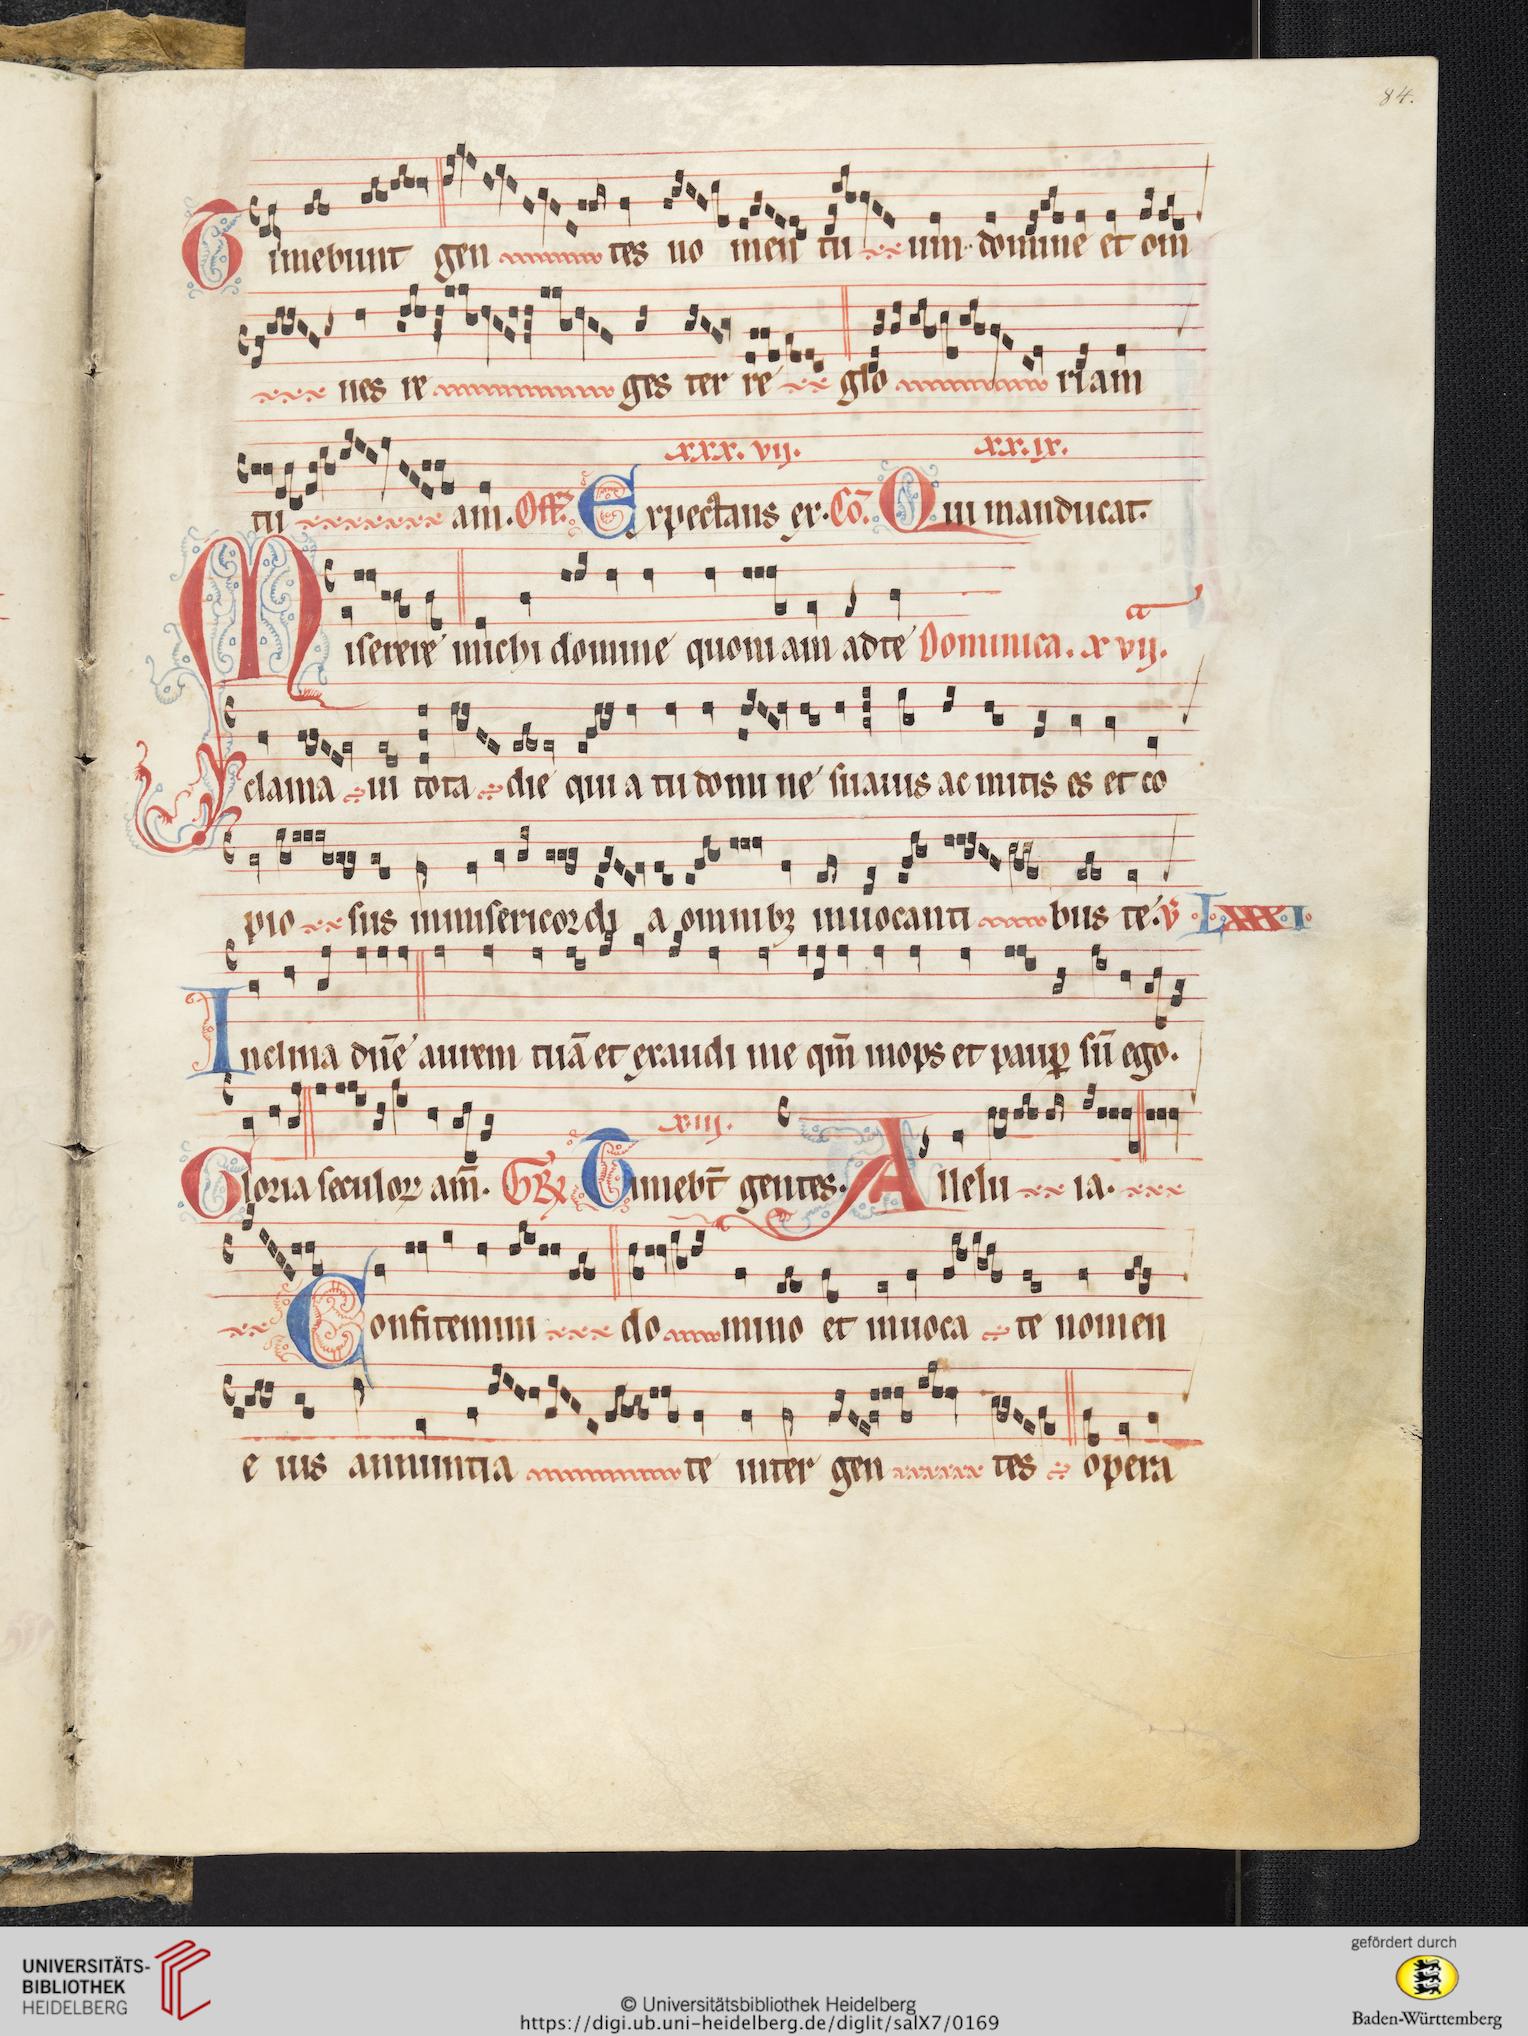 84.
Timebunt gen tes no men tu um. domine et om
nes re ges ter re glo riam
xxx. vij. xx. ix.
tu am. Off. Expectans ex. Co. Qui manducat.
a
Miserere michi domine quoniam ad te Dominica. x vij.
clama ui tota die qui a tu domi ne suauis ac mitis es et co
pio sus in misericordi a omnibꝫ inuocanti bus te. V LXXXI
Inclina dn̄e aurem tuā et exaudi me qm̄ inops et paup̱ sū ego.
xiij.
Gloria seculoꝝ am̄. GR Timebt̄ gentes. Allelu ia.
Confitemini do mino et inuoca te nomen
e ius annuntia te inter gen tes opera
UNIVERSITÄTS-
BIBLIOTHEK
HEIDELBERG
© Universitätsbibliothek Heidelberg
https://digi.ub.uni-heidelberg.de/diglit/salX7/0169
gefördert durch
Baden-Württemberg